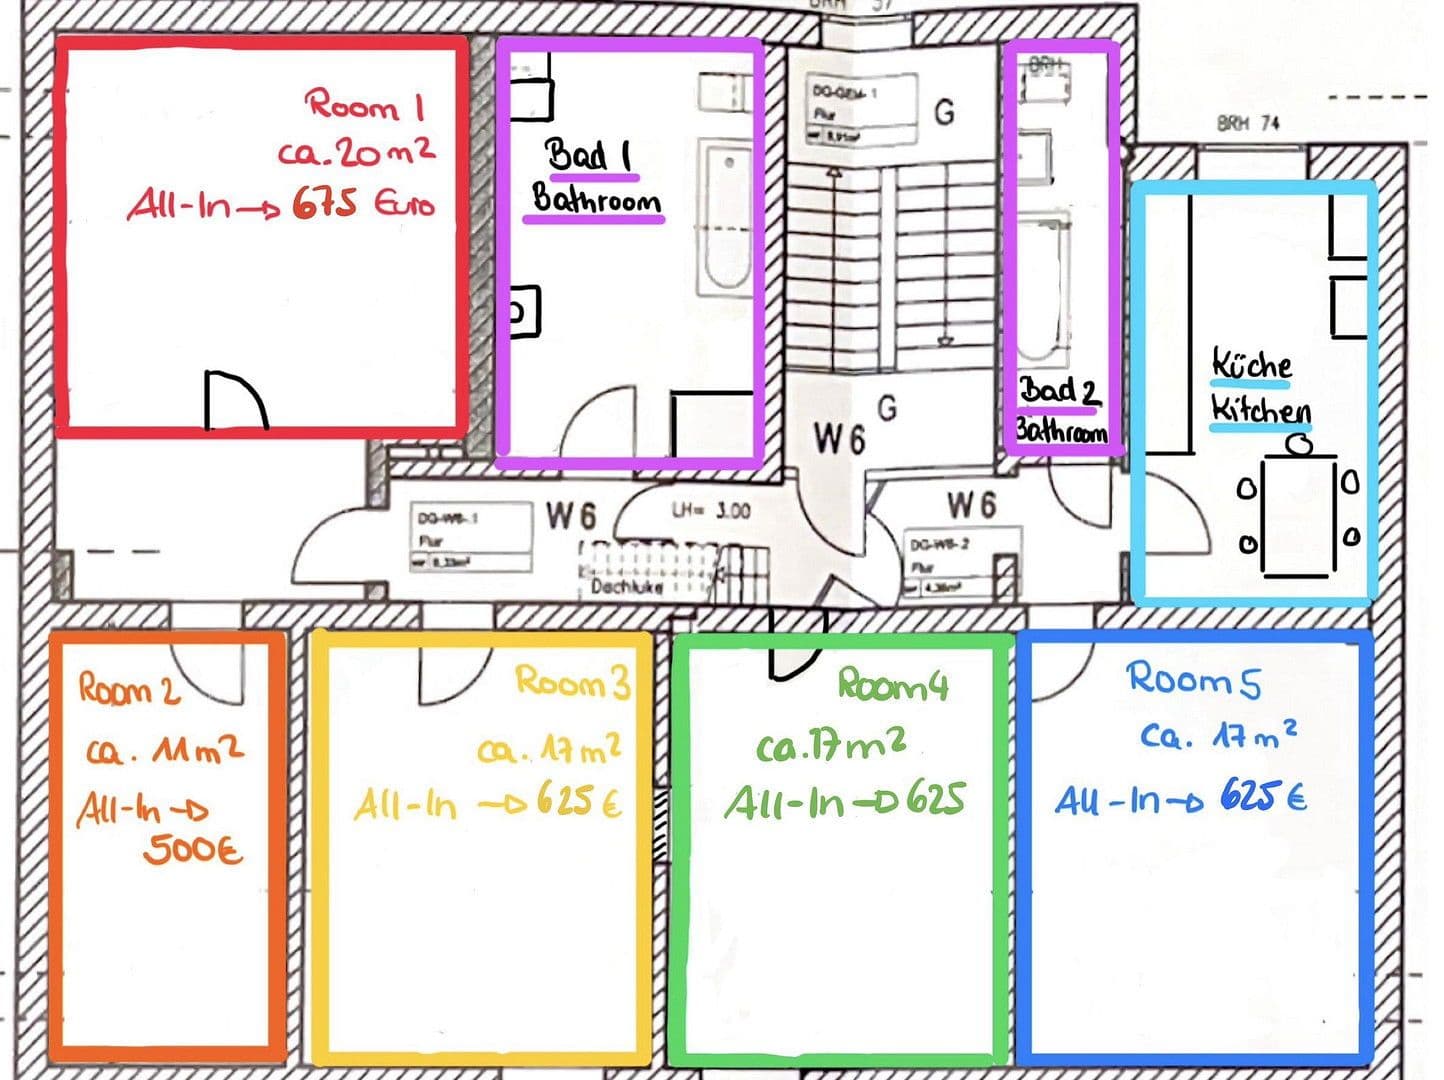 Room 1
ca. 20 m²
All-In → 675 Euro
Bad 1
Bathroom
DG-GEM-1
Flur
G
BRH
BRH 74
Bad 2
Bathroom
Küche
Kitchen
G
W6
DG-W6-1
Flur
W6
LH= 3.00
Dachluke
W6
DG-W6-2
Flur
Room 2
ca. 11m²
All-In →
500€
Room 3
ca. 17m²
All-In → 625 €
Room 4
ca. 17m²
All-In → 625
Room 5
ca. 17m²
All-In → 625 €